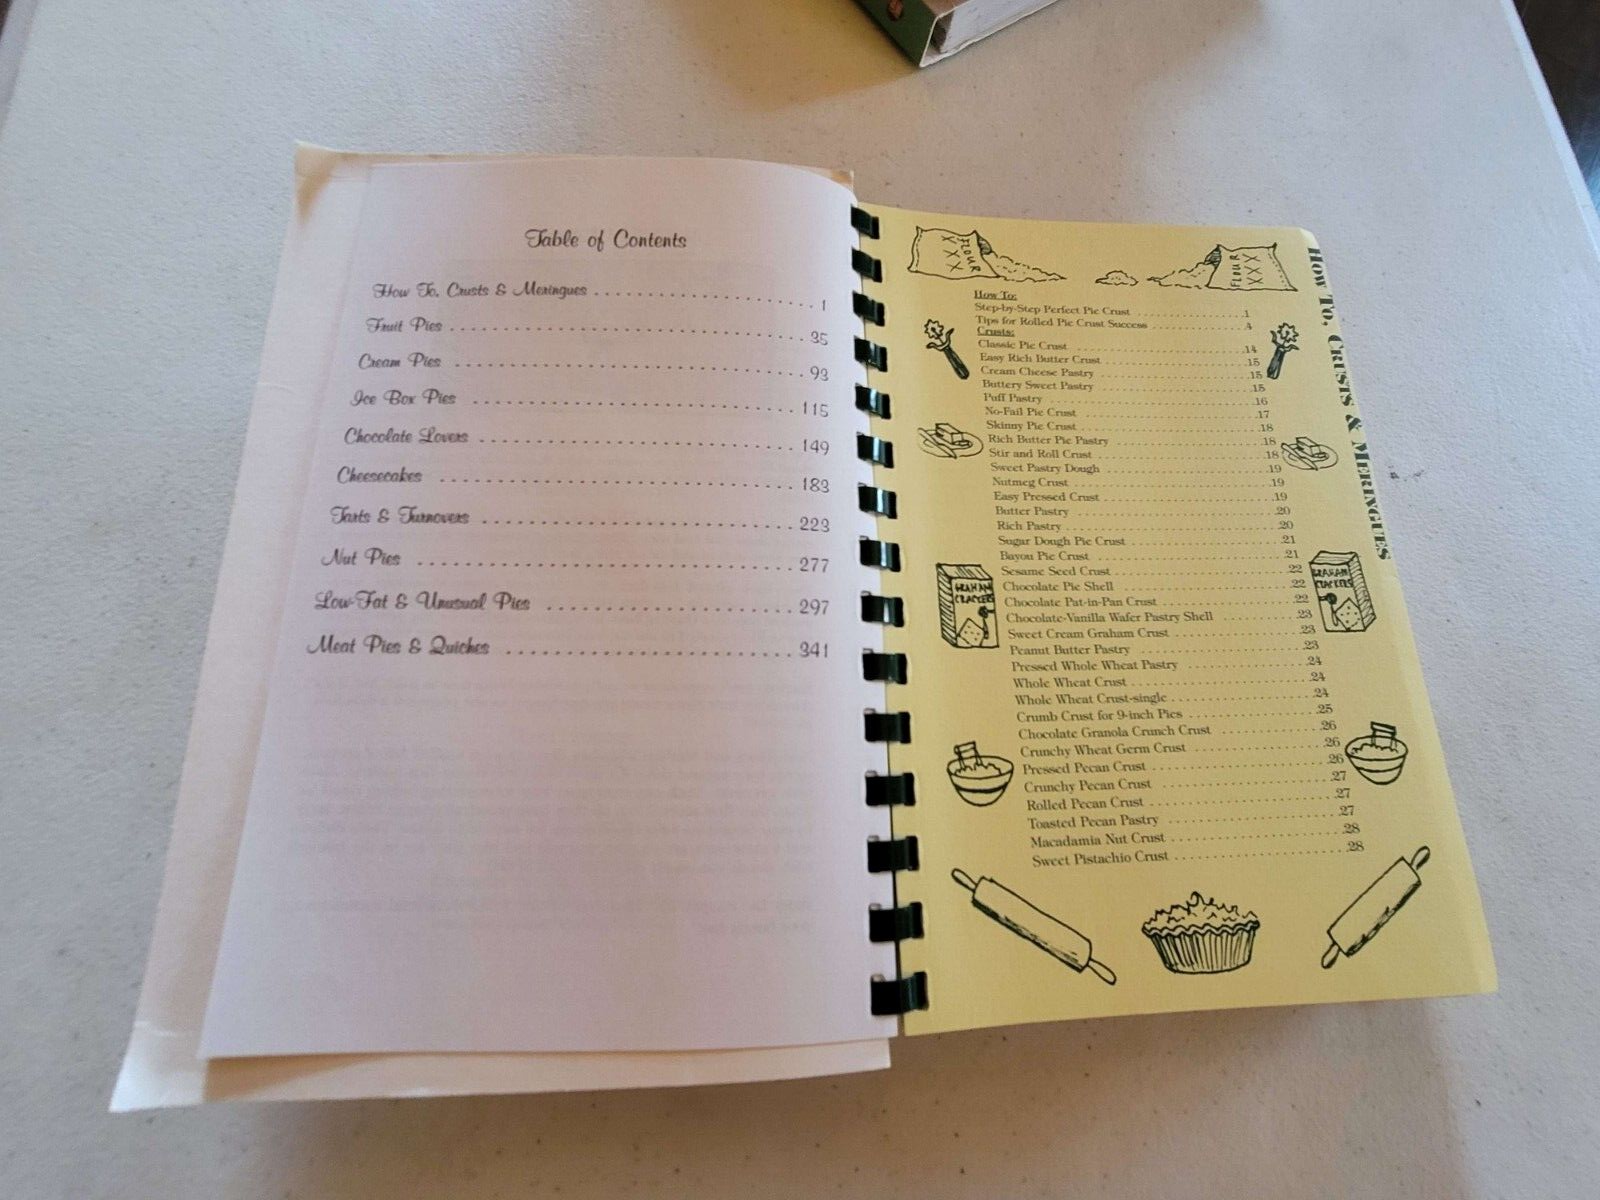 Table of Contents
How To, Crusts & Meringues . . . . . . . . . . . . . . . . . . . . 1
Fruit Pies . . . . . . . . . . . . . . . . . . . . 35
Cream Pies . . . . . . . . . . . . . . . . . . . . 93
Ice Box Pies . . . . . . . . . . . . . . . . . . . . 115
Chocolate Lovers . . . . . . . . . . . . . . . . . . . . 149
Cheesecakes . . . . . . . . . . . . . . . . . . . . 183
Tarts & Turnovers . . . . . . . . . . . . . . . . . . . . 223
Nut Pies . . . . . . . . . . . . . . . . . . . . 277
Low-Fat & Unusual Pies . . . . . . . . . . . . . . . . . . . . 297
Meat Pies & Quiches . . . . . . . . . . . . . . . . . . . . 341
FLOUR
XXX
XXX
FLOUR
XXX
How To, Crusts & Meringues
How To:
Step-by-Step Perfect Pie Crust . . . . . . . . . . 1
Tips for Rolled Pie Crust Success . . . . . . . . . . 4
Crusts:
Classic Pie Crust . . . . . . . . . . 14
Easy Rich Butter Crust . . . . . . . . . . 15
Cream Cheese Pastry . . . . . . . . . . 15
Buttery Sweet Pastry . . . . . . . . . . 15
Puff Pastry . . . . . . . . . . 16
No-Fail Pie Crust . . . . . . . . . . 17
Skinny Pie Crust . . . . . . . . . . 18
Rich Butter Pie Pastry . . . . . . . . . . 18
Stir and Roll Crust . . . . . . . . . . 18
Sweet Pastry Dough . . . . . . . . . . 19
Nutmeg Crust . . . . . . . . . . 19
Easy Pressed Crust . . . . . . . . . . 19
Butter Pastry . . . . . . . . . . 20
Rich Pastry . . . . . . . . . . 20
Sugar Dough Pie Crust . . . . . . . . . . 21
Bayou Pie Crust . . . . . . . . . . 21
Sesame Seed Crust . . . . . . . . . . 22
Chocolate Pie Shell . . . . . . . . . . 22
Chocolate Pat-in-Pan Crust . . . . . . . . . . 22
Chocolate-Vanilla Wafer Pastry Shell . . . . . . . . . . 23
Sweet Cream Graham Crust . . . . . . . . . . 23
Peanut Butter Pastry . . . . . . . . . . 23
Pressed Whole Wheat Pastry . . . . . . . . . . 24
Whole Wheat Crust . . . . . . . . . . 24
Whole Wheat Crust-single . . . . . . . . . . 24
Crumb Crust for 9-inch Pies . . . . . . . . . . 25
Chocolate Granola Crunch Crust . . . . . . . . . . 26
Crunchy Wheat Germ Crust . . . . . . . . . . 26
Pressed Pecan Crust . . . . . . . . . . 26
Crunchy Pecan Crust . . . . . . . . . . 27
Rolled Pecan Crust . . . . . . . . . . 27
Toasted Pecan Pastry . . . . . . . . . . 27
Macadamia Nut Crust . . . . . . . . . . 28
Sweet Pistachio Crust . . . . . . . . . . 28
GRAHAM
CRACKERS
GRAHAM
CRACKERS